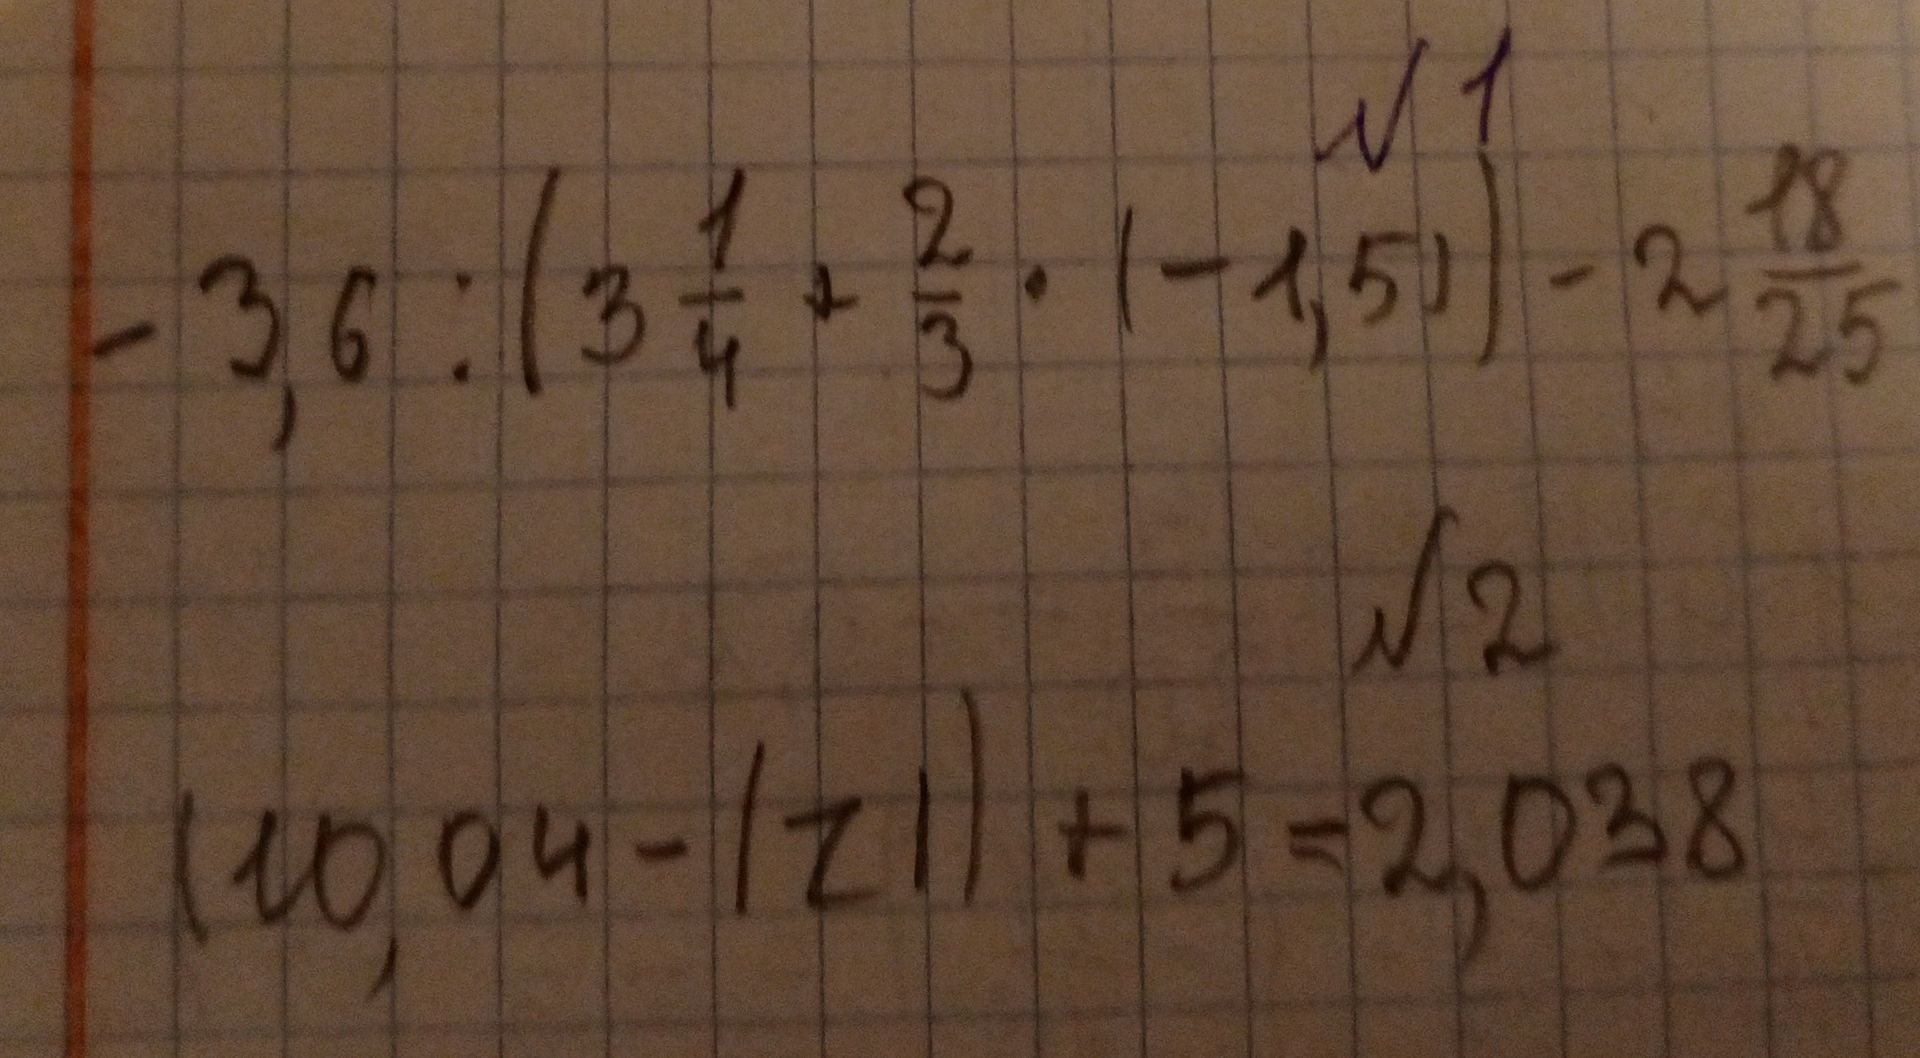 №1
-3,6 : (3 1/4 + 2/3 · (-1,5)) - 2 18/25
№2
(10,04 - |z|) + 5 = 2,038